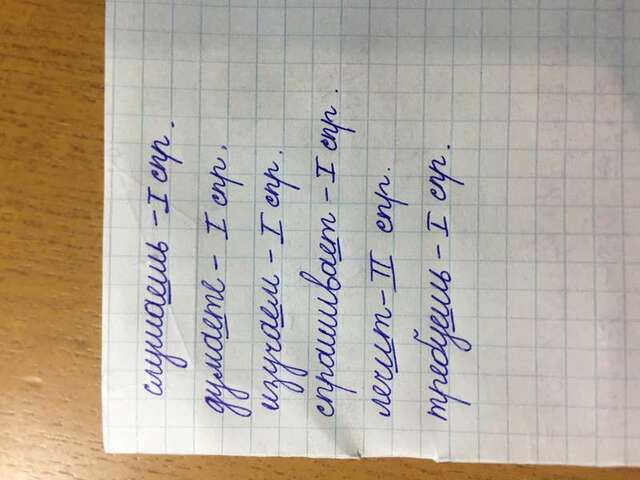 слушаешь - I спр.
думаете - I спр.
изучаем - I спр.
спрашивает - I спр.
лечит - II спр.
требуешь - I спр.